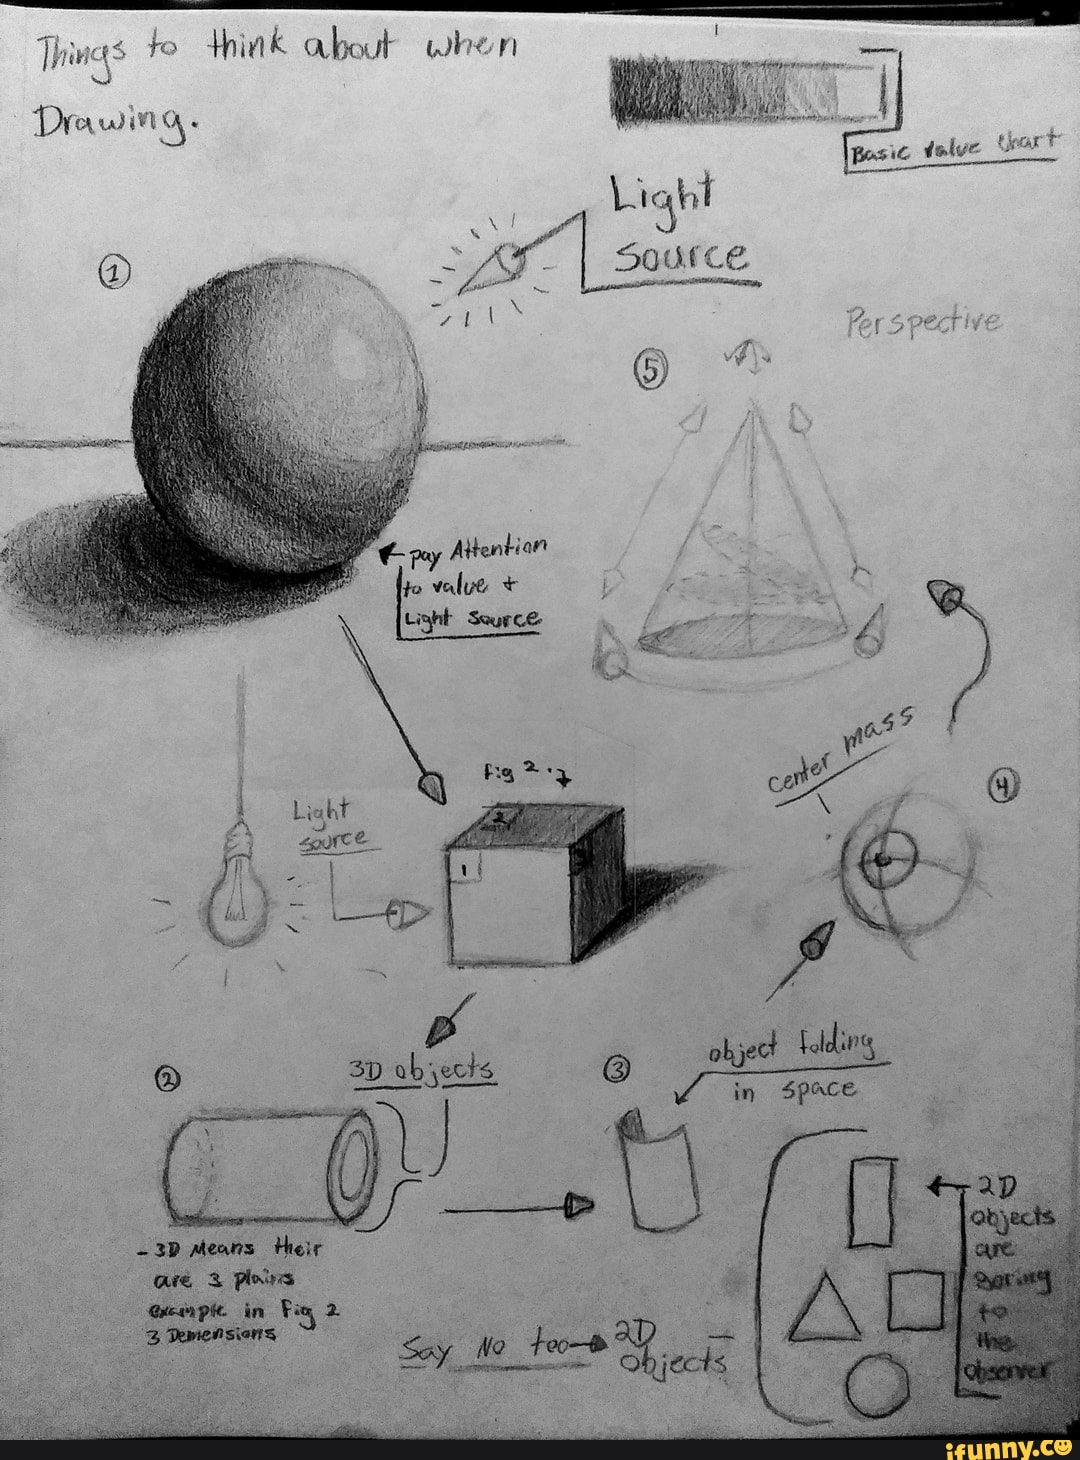 Things to think about when
Drawing.
Basic value chart
Light
source
1
Perspective
5
pay Attention
to value +
Light source
Fig 2.
center mass
4
Light
source
2
1
3D objects
2
3
object folding
in space
- 3D Means their
are 3 plains
example in Fig 2
3 Demensions
2D
objects
are
Boring
to
the
observer
Say No too
2D
objects
ifunny.co